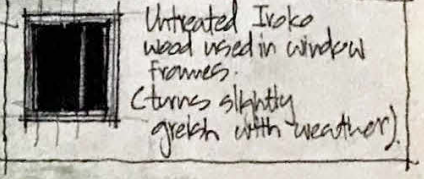 Untreated Iroko
wood used in window
frames.
(turns slightly
greish with weather).